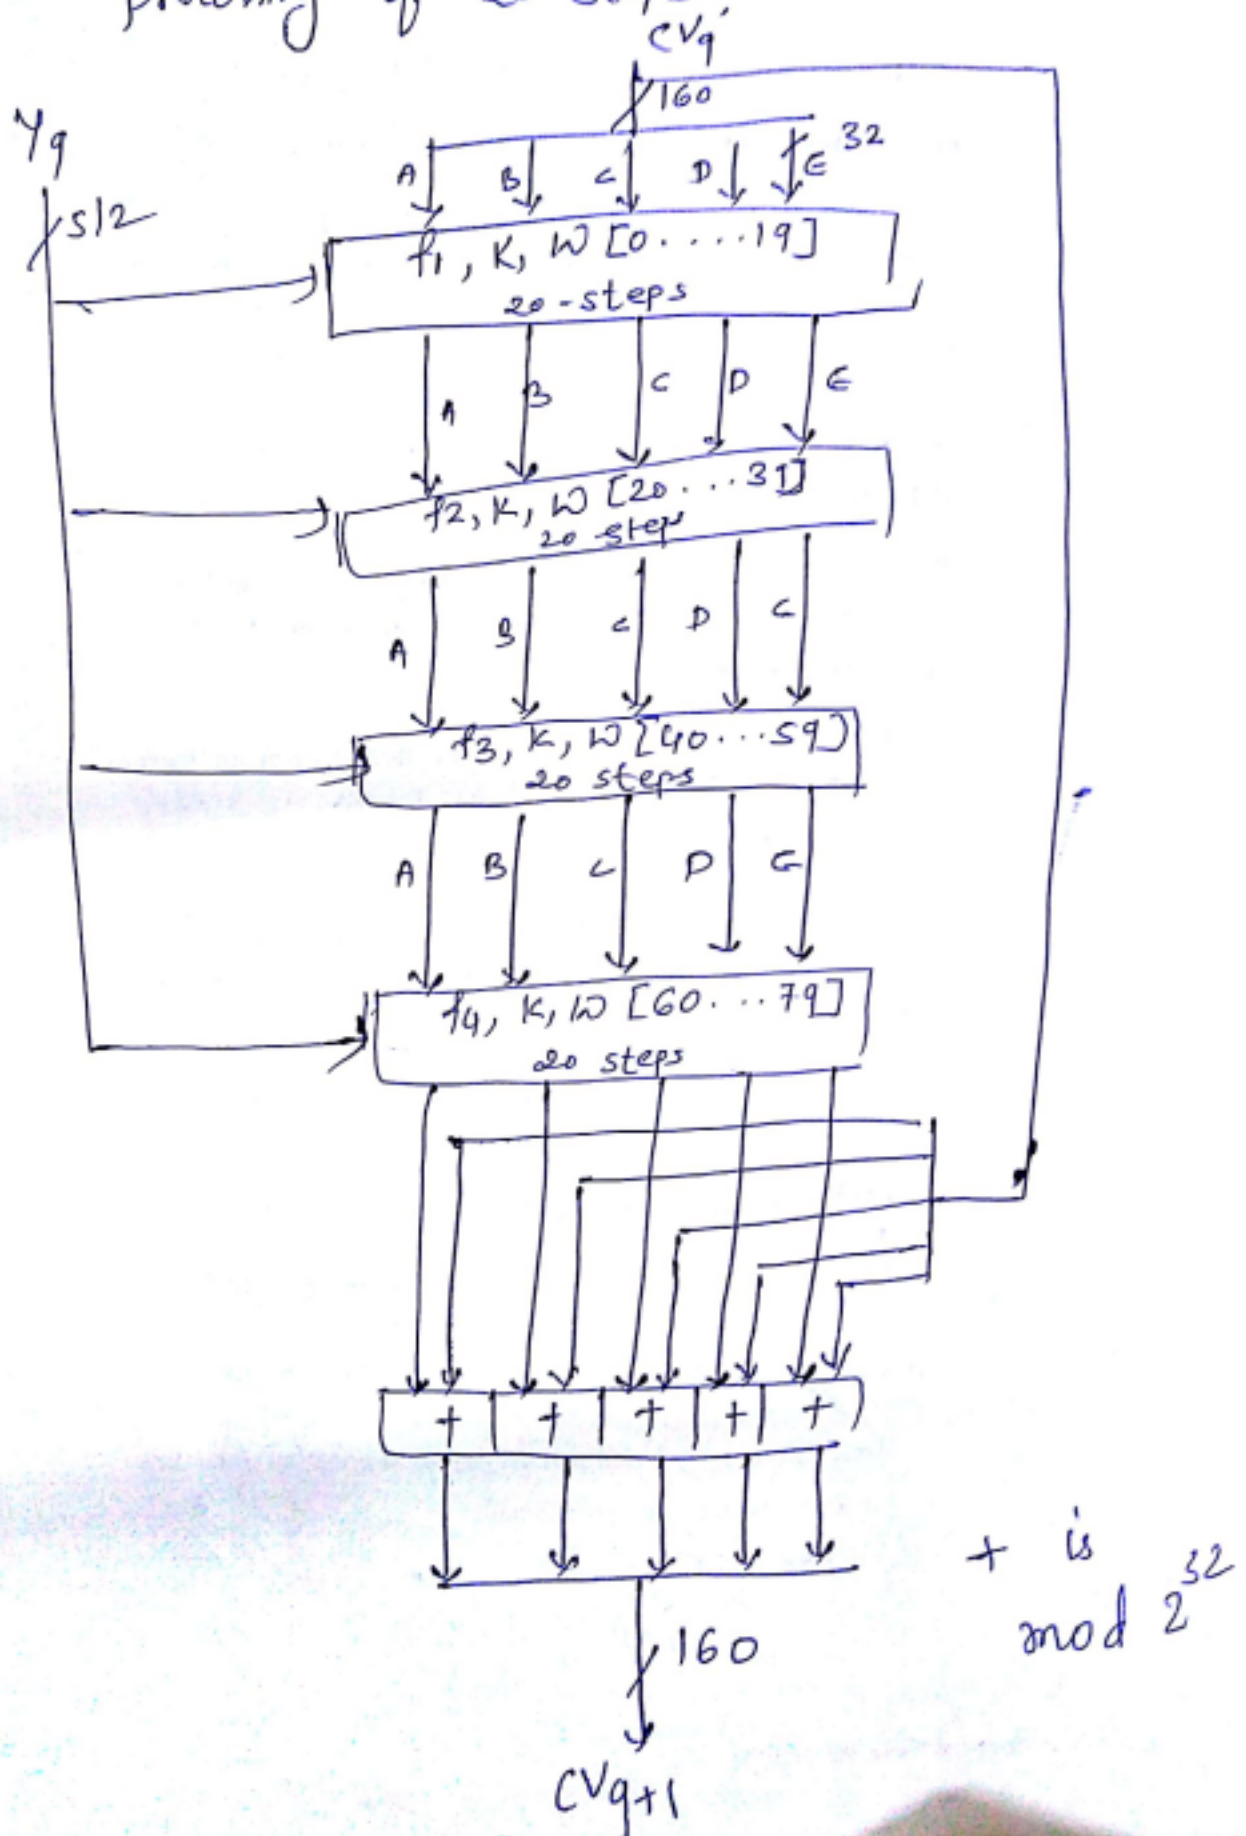 of a
CVq
160
Yq
512
A B C D E 32
f1, K, W [0....19]
20-steps
A B C D E
f2, K, W [20...31]
20 step
A B C D C
f3, K, W [40...59]
20 steps
A B C D G
f4, K, W [60...79]
20 steps
+ + + + +
+ is
mod 2^32
160
CVq+1